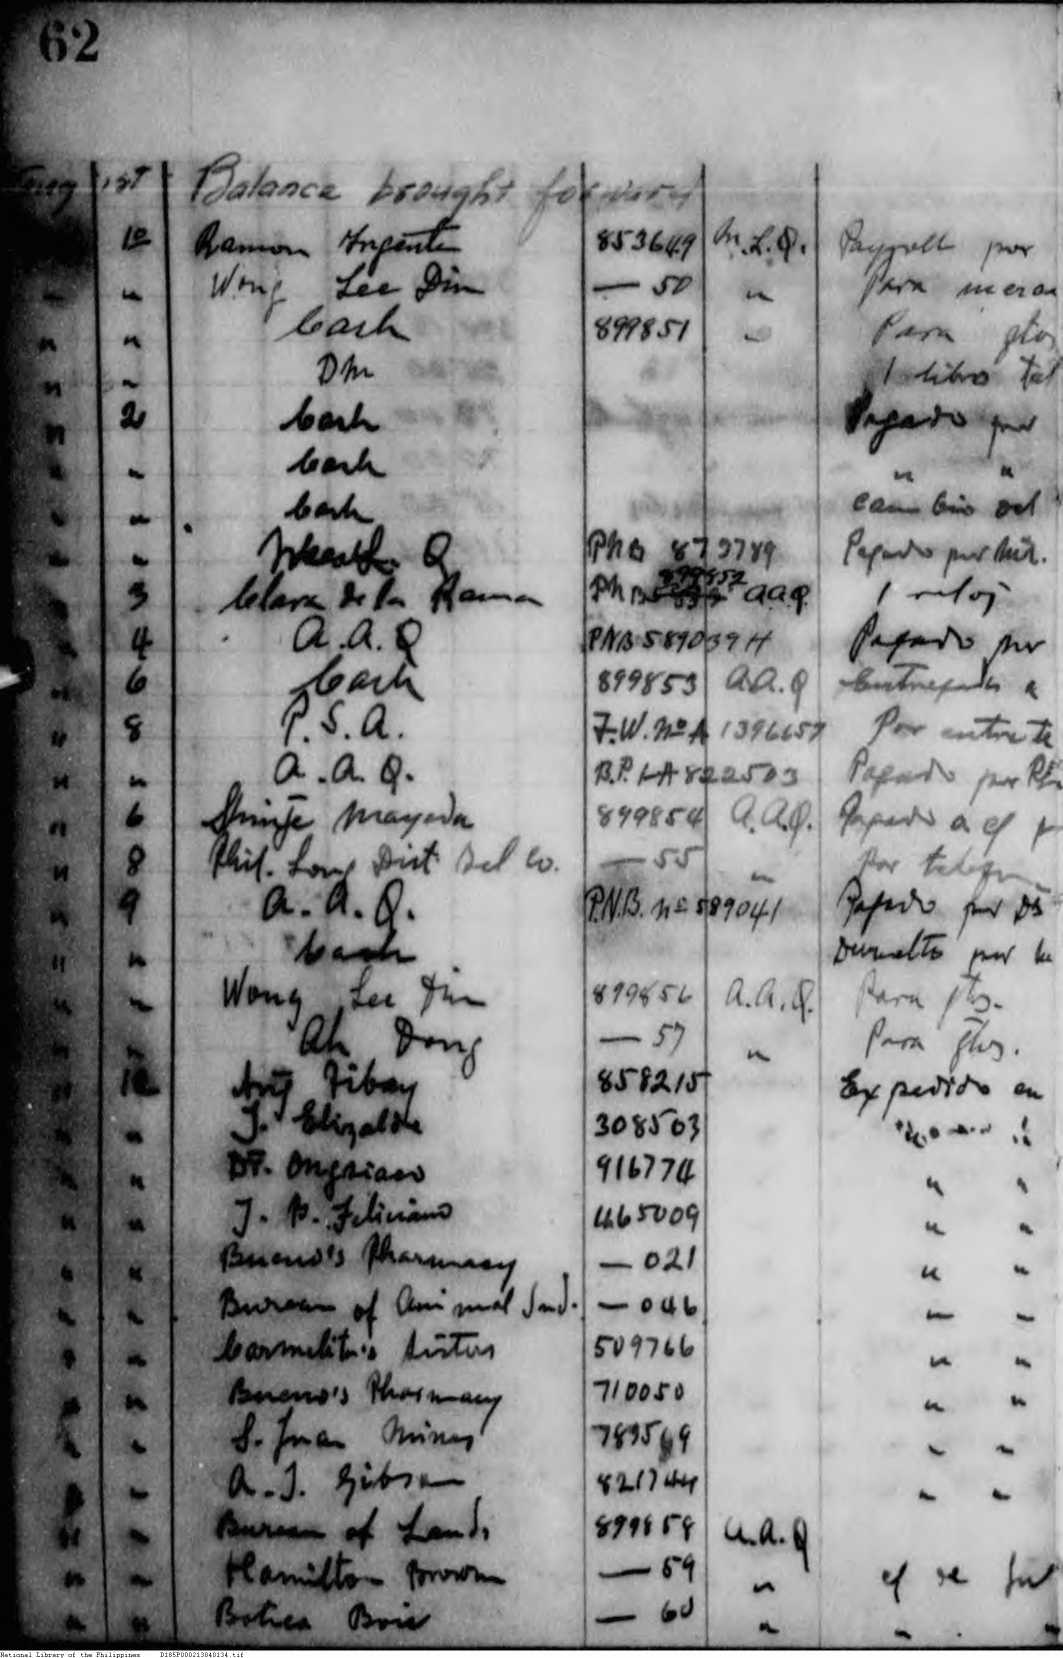 62
Aug 1st Balance brought forward
10 Ramon 853649 M.L.Q. Payroll por
" Wong Lee Din — 50 " Para
" " Cash 899851 " Para gtos
" " Dm 1 libro
" 2 Cash Pagado por
" " Cash " "
" " Cash Cambio del
" " Q PNB 873789 Pagado por
" 3 Clara de la Rama PNB 899852 A.A.Q. 1 reloj
" 4 A.A.Q PNB 589039 H Pagado por
" 6 Cash 899853 A.A.Q Entregado a
" 8 P.S.A. F.W. No A 1396657 Por
" " A.A.Q. B.P.I-A 822503 Pagado por
" 6 Mayeda 899854 A.A.Q. Pagado a cf
" 8 Phil. Long Dist Tel Co. — 55 " Por
" 9 A.A.Q. P.N.B. No 589041 Pagado por
" " Cash Devuelto por
" " Wong Lee Din 899856 A.A.Q. Para gtos.
" " Ah Dong — 57 " Para gtos.
" Ang Tibay 858215 Expedido en
" " J. Elizalde 308503
" " Dr. Ongsiaco 916774 " "
" " J. B. Feliciano 465009 " "
" " Bueno's Pharmacy — 021 " "
" " Bureau of Animal Ind. — 046 " "
" " Carmelita's Sisters 509766 " "
" " Bueno's Pharmacy 710050 " "
" " S. Juan Mines 789569 " "
" " A. J. Gibson 821744 " "
" " Bureau of Lands 899858 A.A.Q
" " Hamilton Brown — 59 " cf se
" " Botica Boie — 60 " " "
National Library of the Philippines D185P000213040134.tif